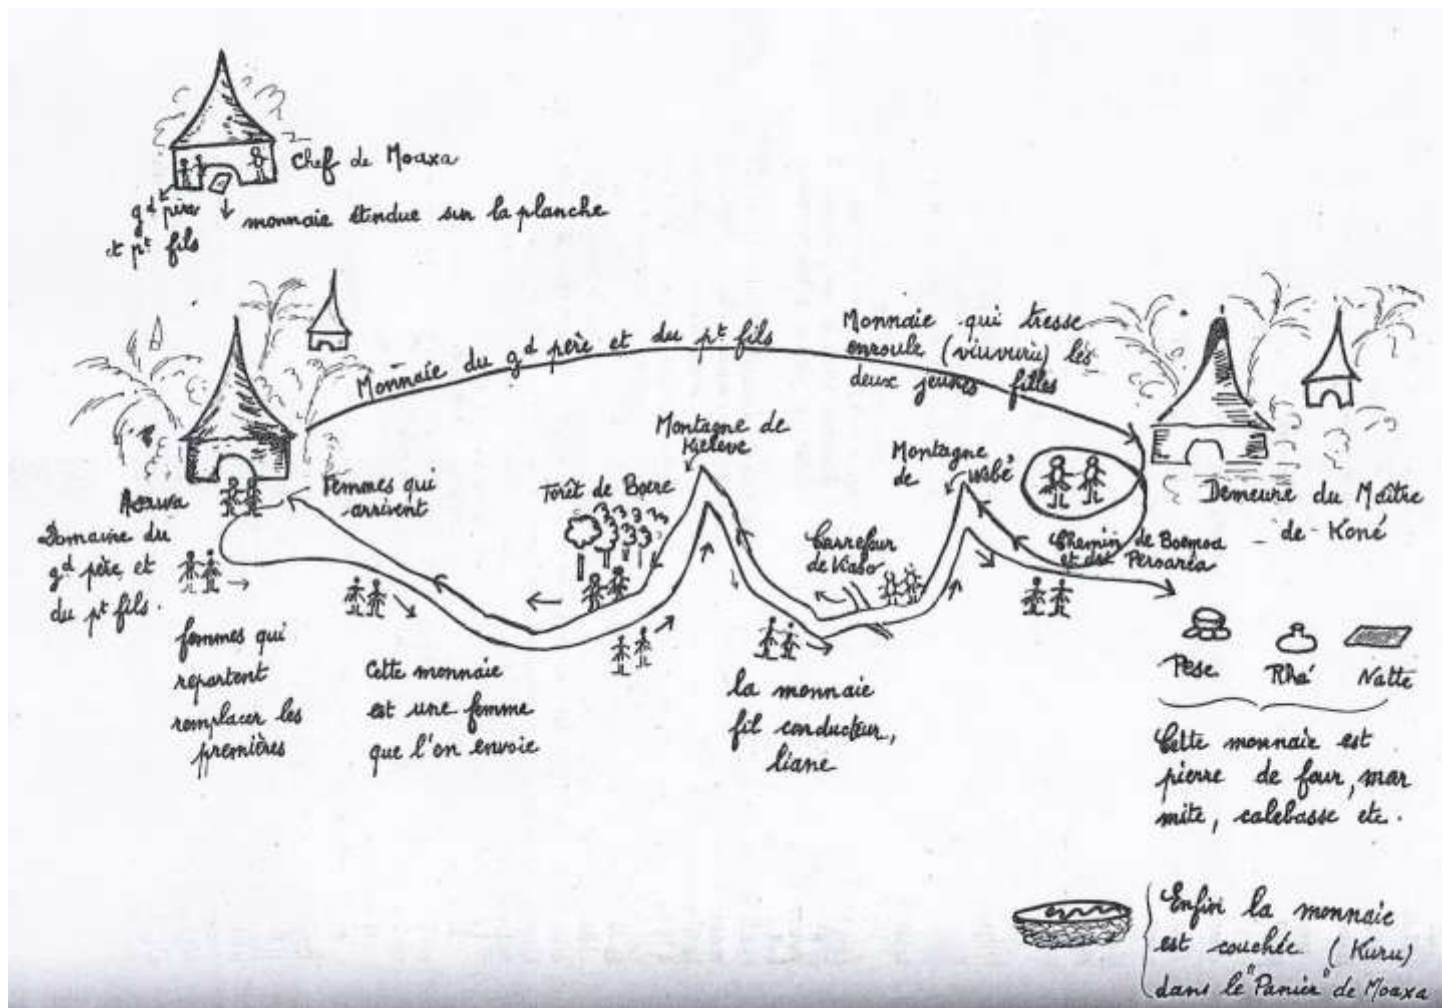 Chef de Moaxa
gd père
et pt fils
monnaie étendue sur la planche
Monnaie du gd père et du pt fils
Monnaie qui tresse
enroule (viuvuru) les
deux jeunes filles
Montagne de
Kieleve
Montagne
de
Forêt de Boere
Femmes qui
arrivent
Domaine du
gd père et
du pt fils.
Carrefour
de
Chemin de Boemoa
et de Peroarea
Demeure du Maître
de Koné
femmes qui
repartent
remplacer les
premières
Cette monnaie
est une femme
que l'on envoie
la monnaie
fil conducteur,
liane
Pese
Rhá
Natte
Cette monnaie est
pierre de four, mar
mite, calebasse etc.
Enfin la monnaie
est couchée (Kuru)
dans le "Panier" de Moaxa